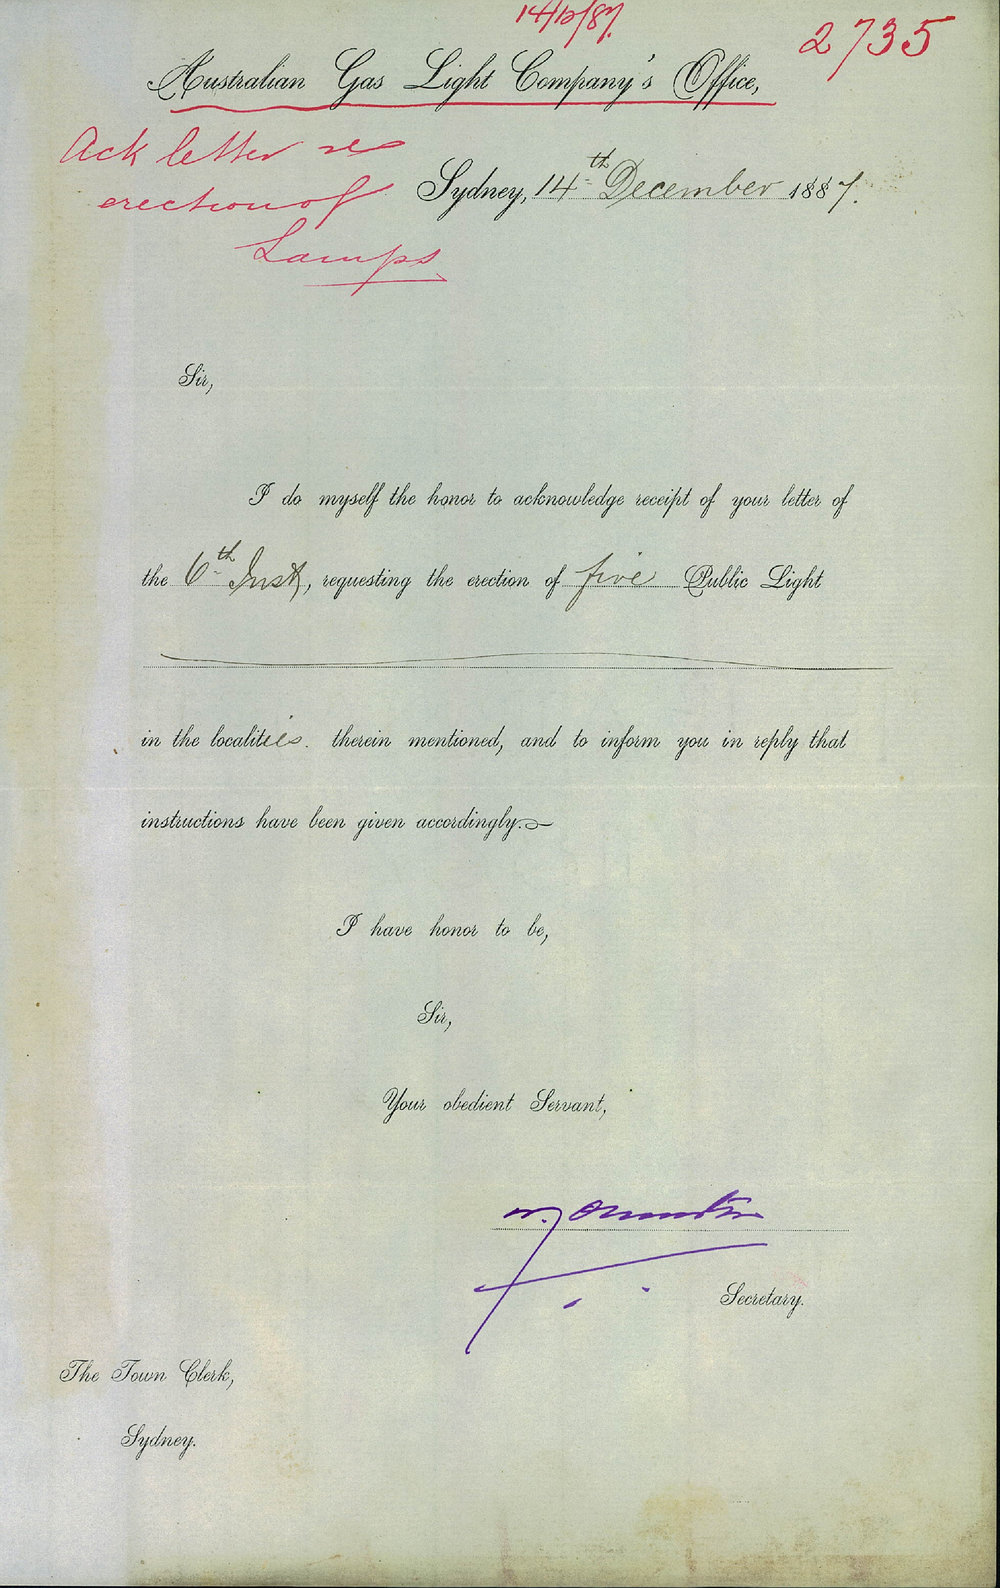 14/12/87.
2735
Australian Gas Light Company's Office,
Ack letter re
erection of
Lamps
Sydney, 14th December 1887.
Sir,
I do myself the honor to acknowledge receipt of your letter of
the 6th Inst, requesting the erection of five Public Light
in the localities. therein mentioned, and to inform you in reply that
instructions have been given accordingly.
I have honor to be,
Sir,
Your obedient Servant,
Secretary.
The Town Clerk,
Sydney.